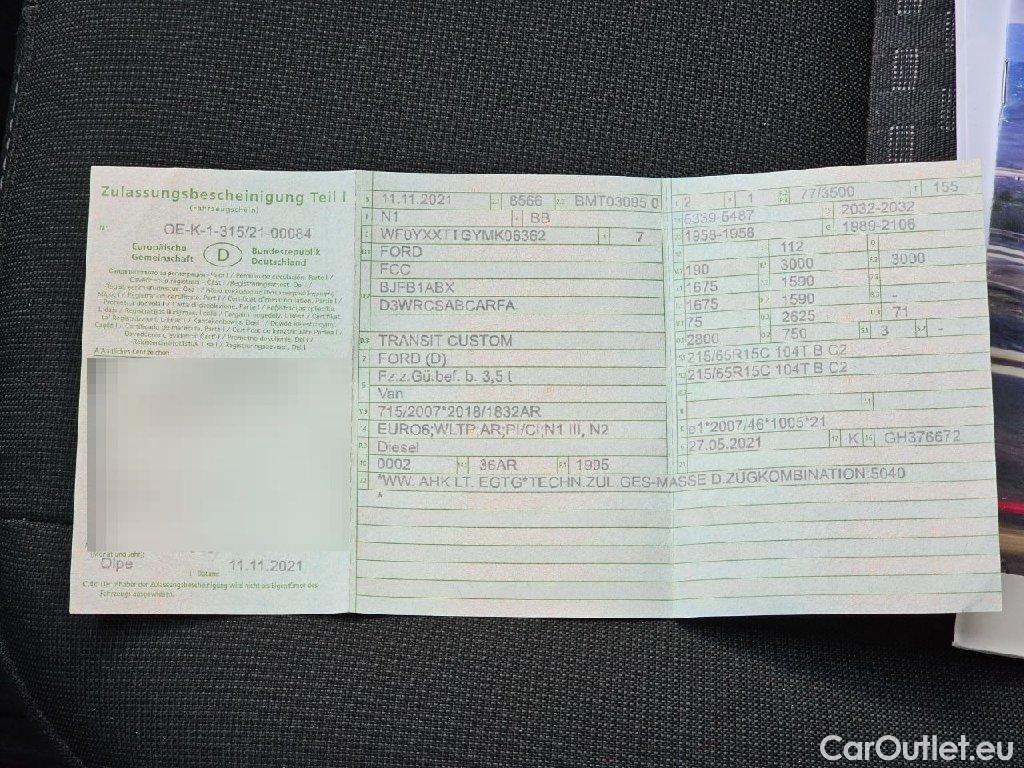 Zulassungsbescheinigung Teil I
(Fahrzeugschein)
OE-K-1-315/21-00084
Europäische Gemeinschaft
D
Bundesrepublik Deutschland
Olpe
11.11.2021
C.4c Der Inhaber der Zulassungsbescheinigung wird nicht als Eigentümer des
Fahrzeugs ausgewiesen.
11.11.2021 8566 BMT03095 0
N1 BB
WF0YXXTTGYMK06362 7
FORD
FCC
BJFB1ABX
D3WRCSABCARFA
TRANSIT CUSTOM
FORD (D)
Fz.z.Gü.bef. b. 3,5 t
Van
715/2007*2018/1832AR
EURO6;WLTP;AR;PI/CI;N1 III, N2
Diesel
0002 36AR 1995
*WW. AHK LT. EGTG*TECHN.ZUL.GES-MASSE D.ZUGKOMBINATION:5040
*
2 1 77/3500 155
5339-5487 2032-2032
1958-1958 1989-2106
112
190 3000 3000
1675 1590
1675 1590 -
75 2625 71
2800 750 3 -
215/65R15C 104T B C2
215/65R15C 104T B C2
-
e1*2007/46*1005*21
27.05.2021 K GH376672
CarOutlet.eu